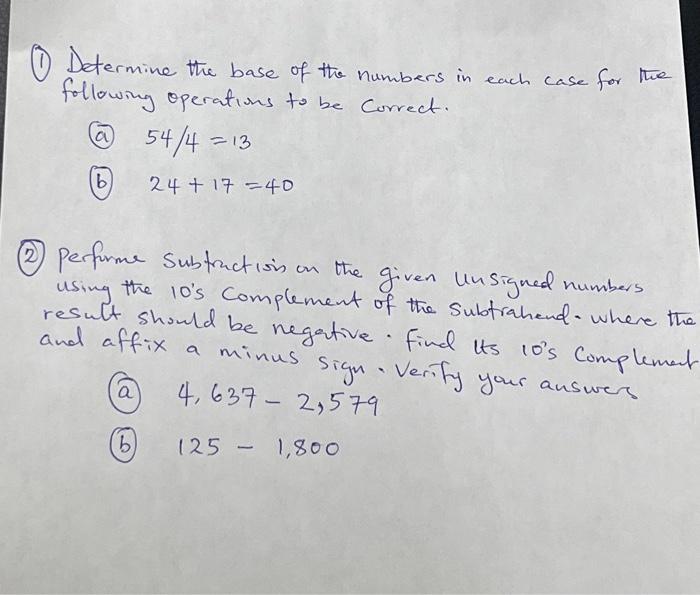 ① Determine the base of the numbers in each case for the
following operations to be Correct.
ⓐ 54/4 = 13
ⓑ 24 + 17 = 40
② performe Subtraction on the given unsigned numbers
using the 10's Complement of the Subtrahend. where the
result should be negative. find its 10's Complement
and affix a minus sign. Verify your answers
ⓐ 4,637 - 2,579
ⓑ 125 - 1,800